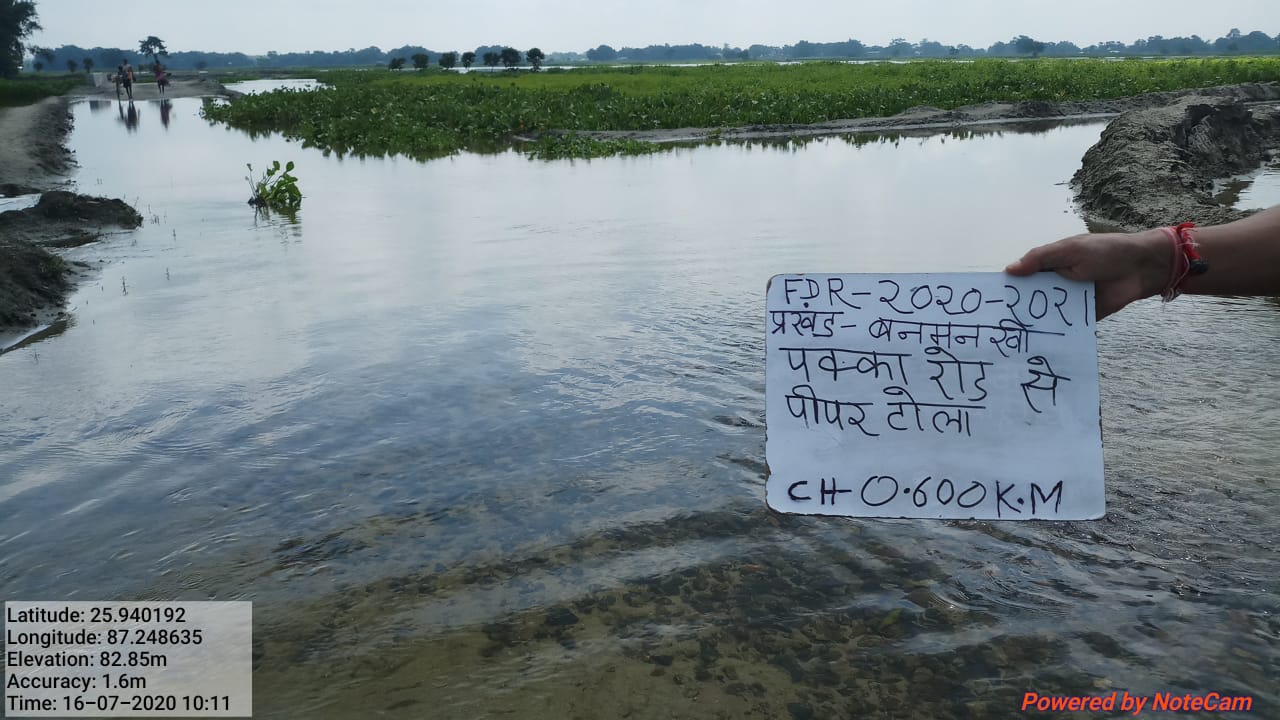 FDR-२०२०-२०२१
प्रखंड- बनमनखी
पक्का रोड से
पीपर टोला
CH-0.600K.M
Latitude: 25.940192
Longitude: 87.248635
Elevation: 82.85m
Accuracy: 1.6m
Time: 16-07-2020 10:11
Powered by NoteCam